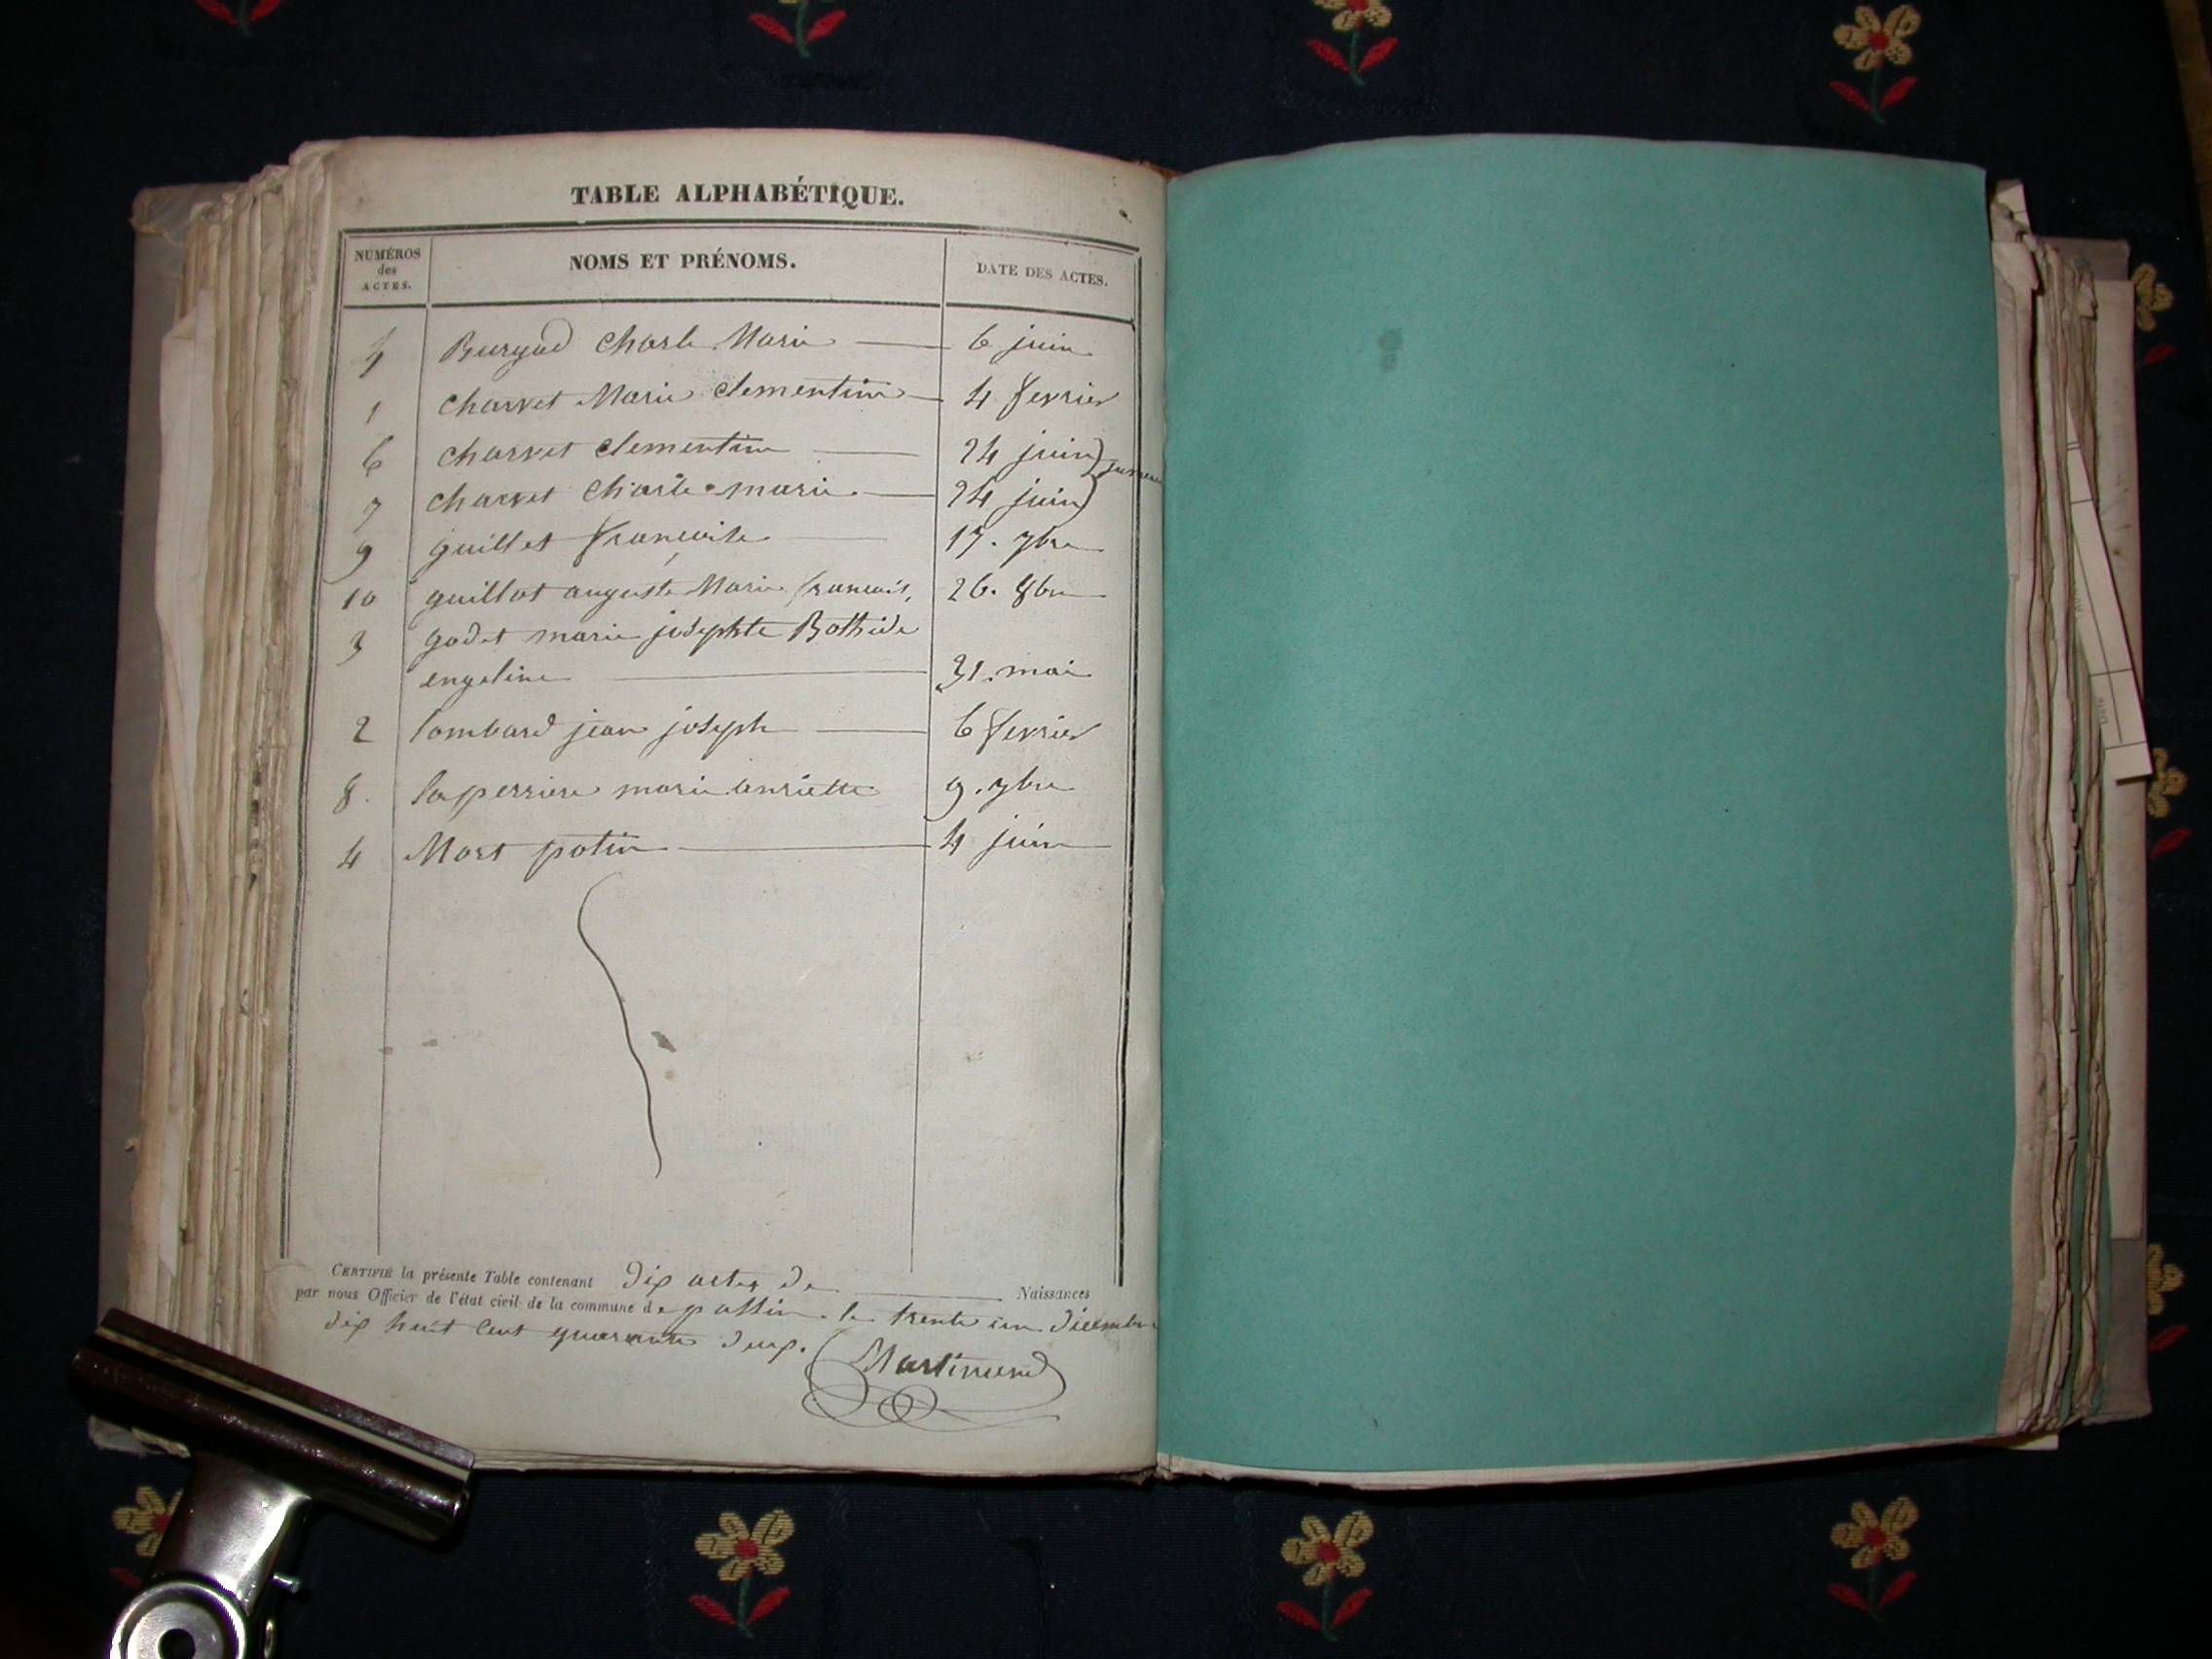 TABLE ALPHABÉTIQUE.
NUMÉROS des ACTES. NOMS ET PRÉNOMS. DATE DES ACTES.
5 Burgod Charle Marie 6 juin
1 Charvet Marie Clementine 4 fevrier
6 Charvet Clementine 24 juin
7 Charvet Charle marie 24 juin
9 guillet françoise 17. 7bre
10 guillot auguste Marie francois, 26. 8bre
3 godet marie josephte Bathide
engeline 31. mai
2 lombard jean joseph 6 fevrier
8. laperriere marie enriette 9. 7bre
4 Mort 4 juin
CERTIFIÉ la présente Table contenant Dix actes de Naissances
par nous Officier de l'état civil de la commune de le trente un Dicembre
dix huit cent quarante deux.
Martinand